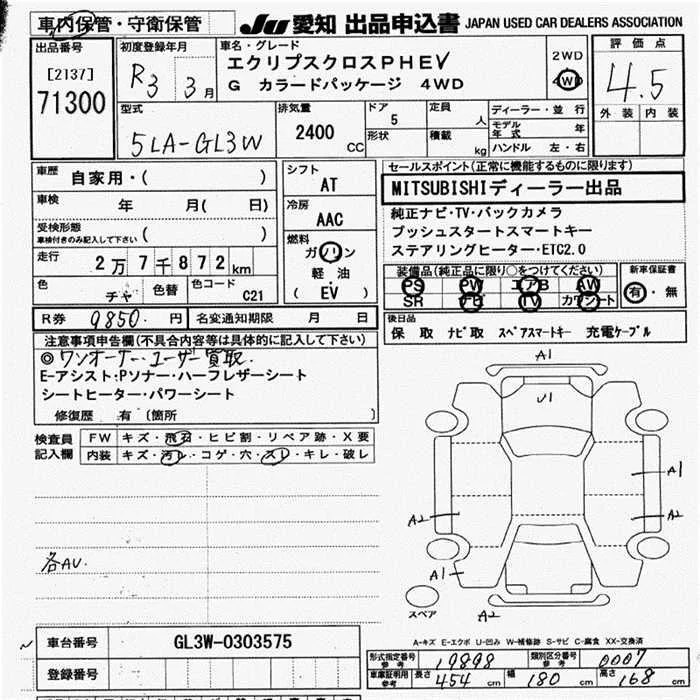 車内保管・守衛保管 JU 愛知 出品申込書 JAPAN USED CAR DEALERS ASSOCIATION
出品番号
[2137]
71300
初度登録年月
R3 3月
車名・グレード
エクリプスクロスPHEV
G カラードパッケージ 4WD
2WD
4WD
評価点
4.5
外装 内装
型式
5LA-GL3W
排気量
2400 CC
ドア
5
形状
定員
人
積載
kg
ディーラー・並行
モデル年式 年
ハンドル 左・右
車歴
自家用・( )
車検
年 月( 日)
受検形態
車検付きのみ記入して下さい ( )
走行
2万7千872km
色
チャ
色替
色コード
C21
シフト
AT
冷房
AAC
燃料
ガソリン
軽油
(EV)
セールスポイント(正常に機能するものに限ります)
MITSUBISHIディーラー出品
純正ナビ・TV・バックカメラ
プッシュスタートスマートキー
ステアリングヒーター・ETC2.0
装備品(純正品に限り○をつけてください)
PS PW エアB AW
SR ナビ TV カワシート
新車保証書
有・無
R券 9850.円 名変通知期限 月 日
後日品
保 取 ナビ取 スペアスマートキー 充電ケーブル
注意事項申告欄(不具合内容等は具体的に記入して下さい)
◎ワンオーナーユーザー買取.
E-アシスト・Pソナー・ハーフレザーシート
シートヒーター・パワーシート
修復歴 有 (箇所 )
検査員記入欄
FW キズ・飛石・ヒビ割・リペア跡・X要
内装 キズ・汚レ・コゲ・穴・スレ・キレ・破レ
各AU.
A1
U1
A1
A2
A2
A1
スペア
A2
A-キズ E-エクボ U-凹み W-補修跡 S-サビ C-腐食 XX-交換済
車台番号 GL3W-0303575
登録番号
形式指定番号 参考 19898 類別区分番号 参考 0007
車庫証明用 参考 長さ 454cm 幅 180cm 高さ 168cm